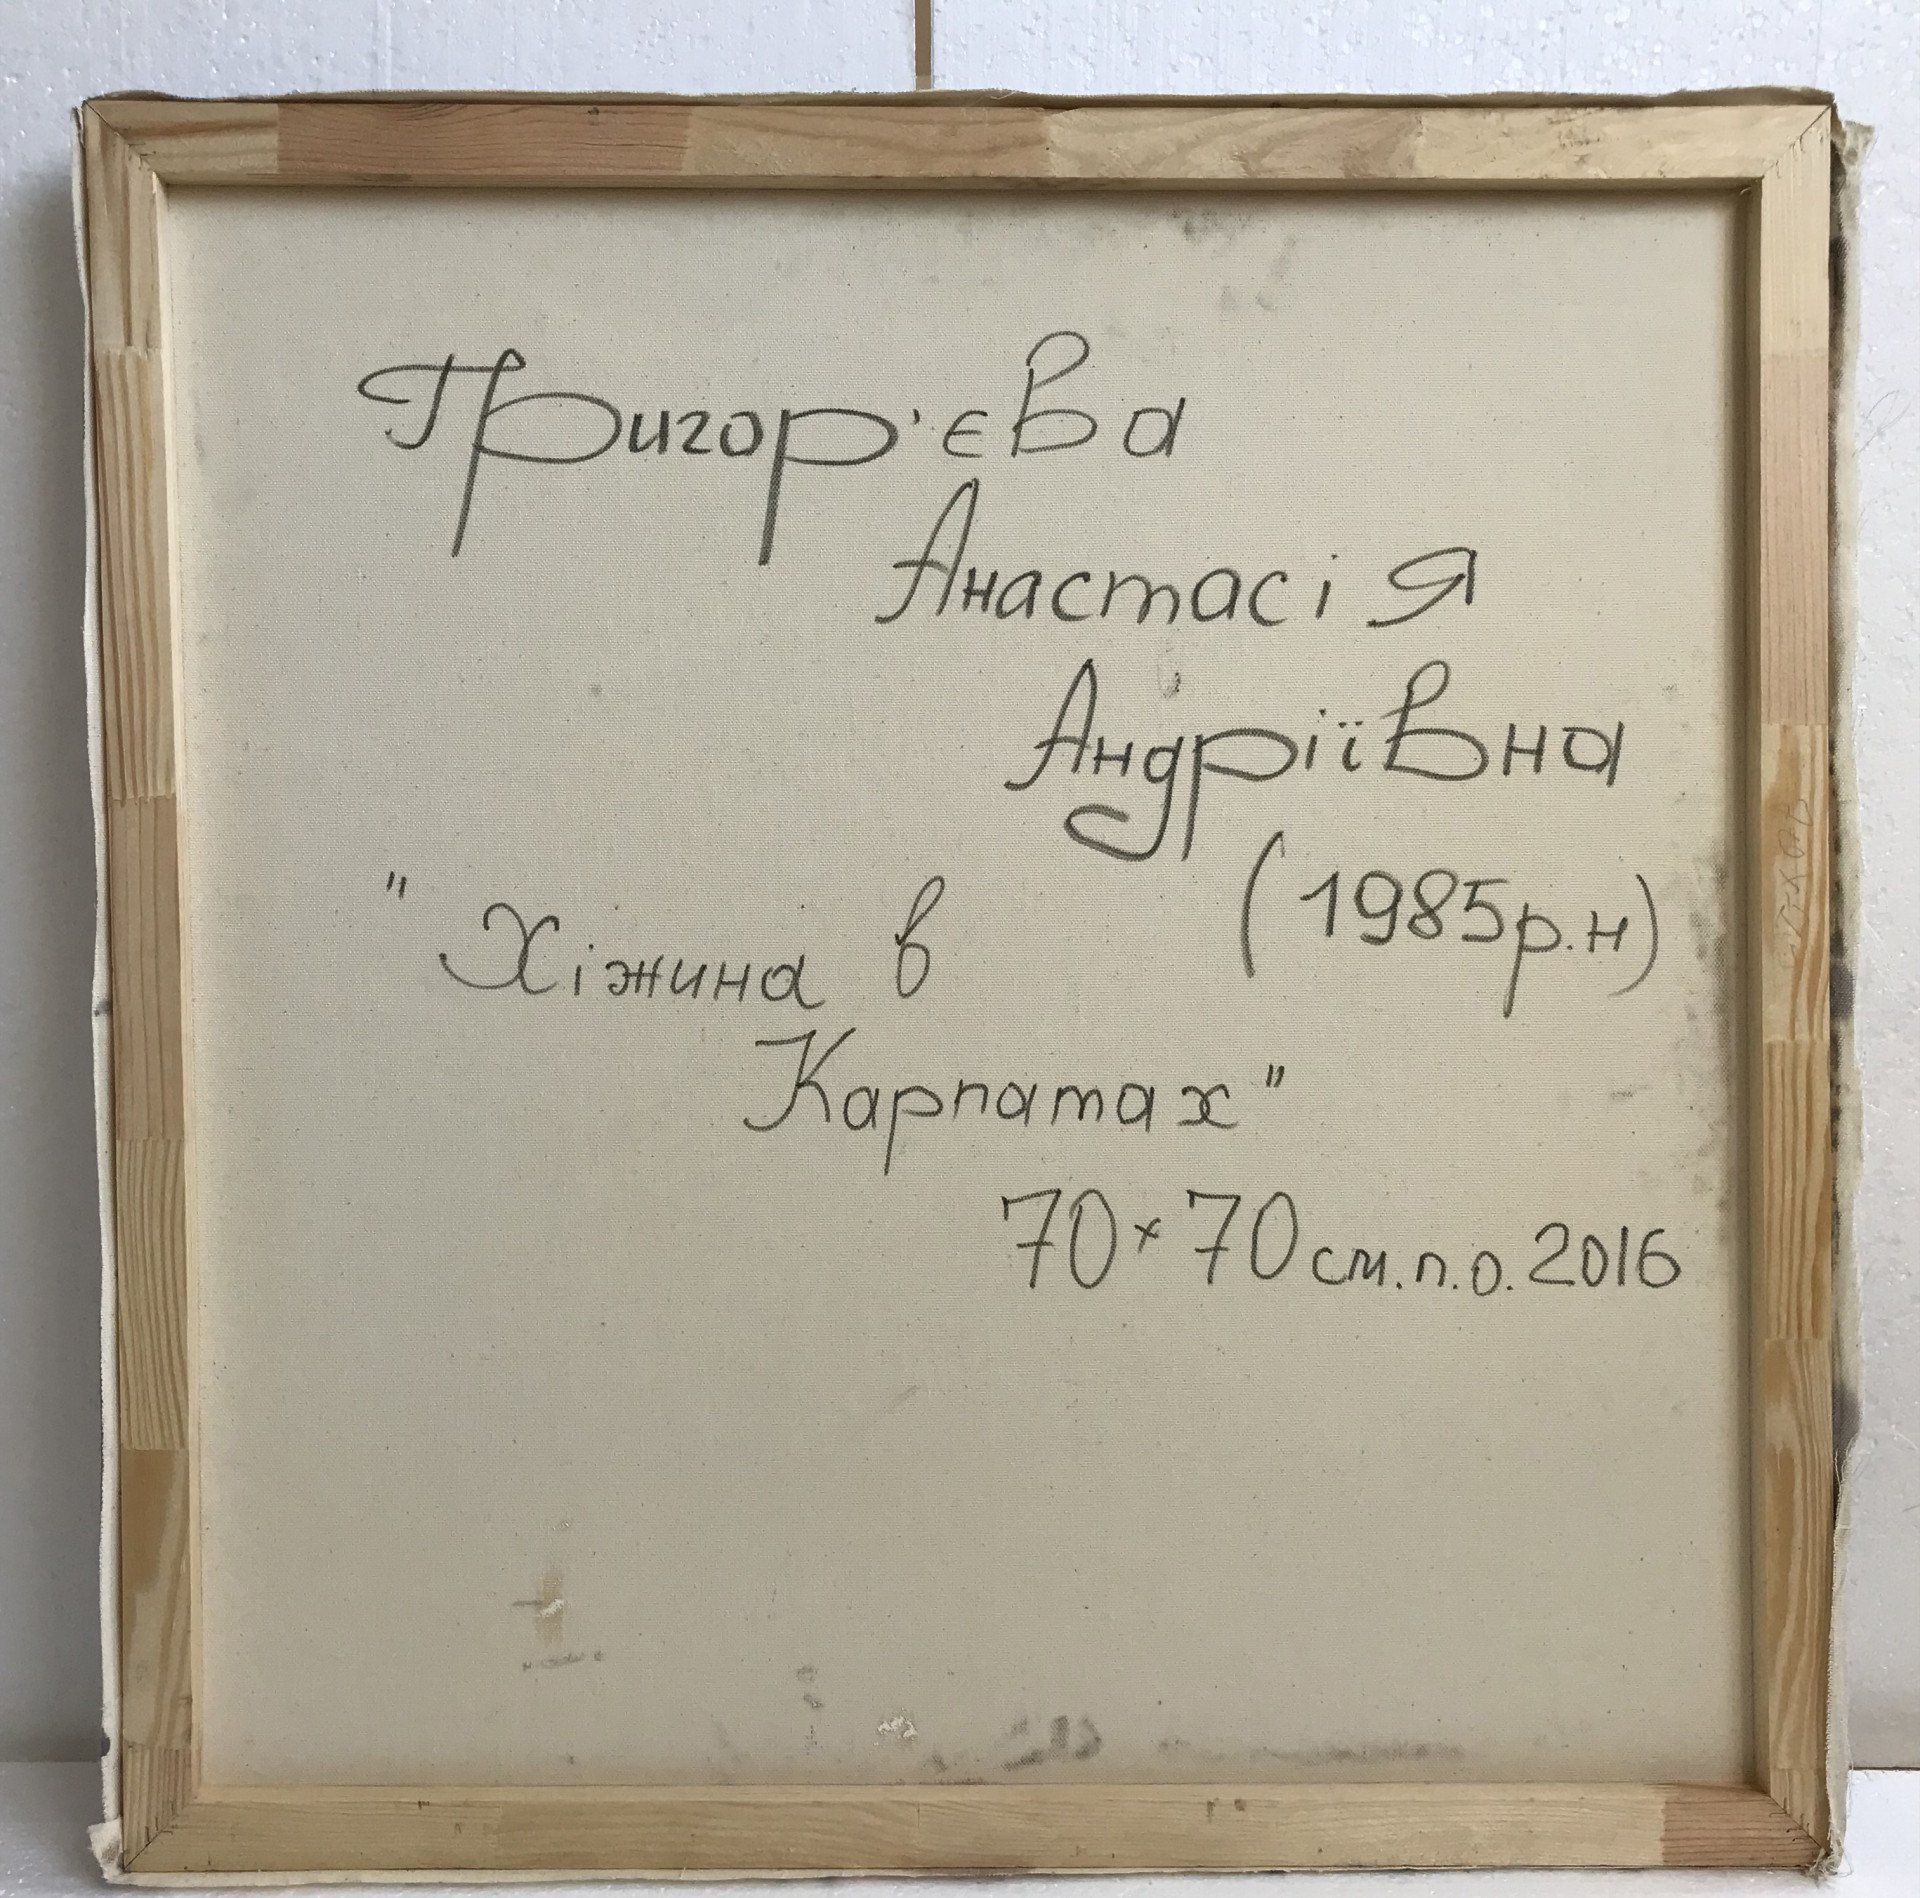 Григор'єва
Анастасія
Андріївна
(1985р.н)
"Хіжина в
Карпатах"
70×70см.п.о.2016